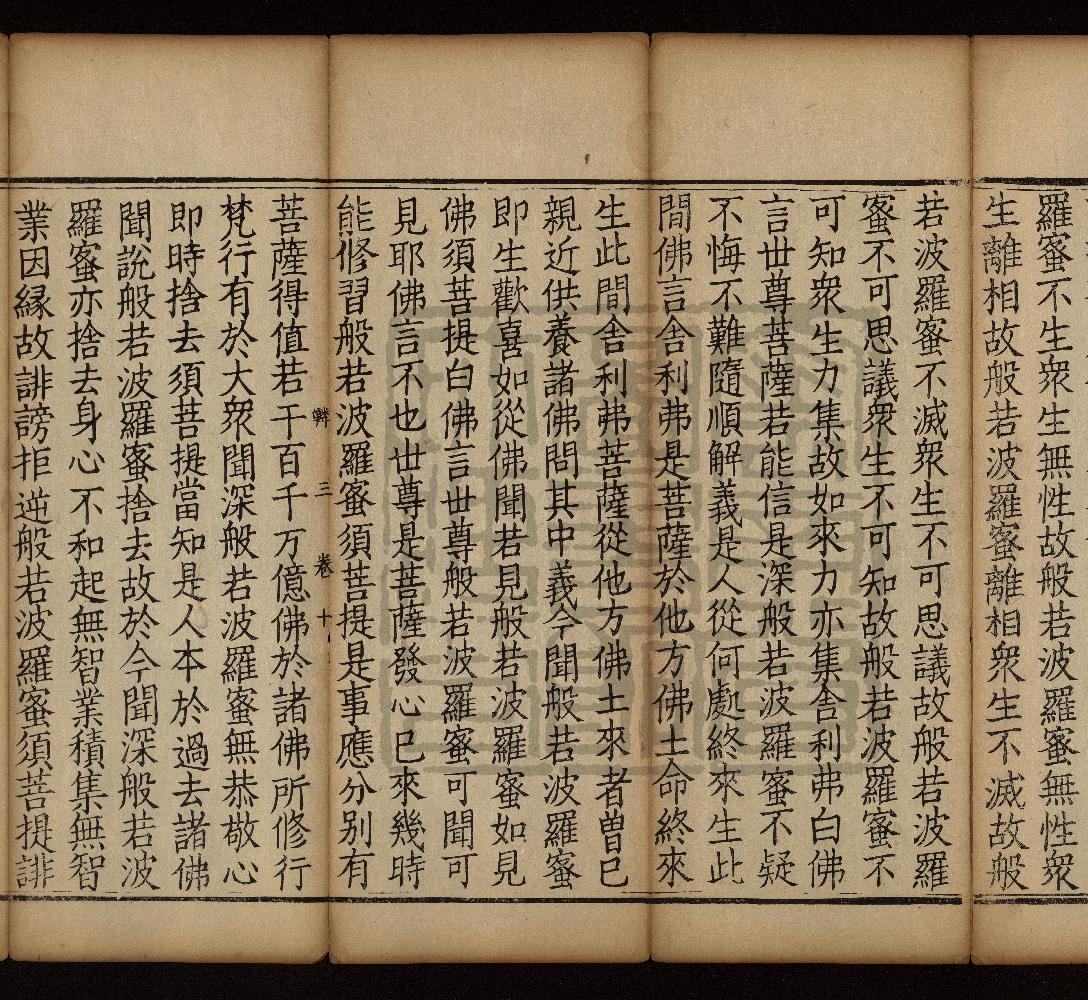 羅蜜不生衆生無性故般若波羅蜜無性衆
生離相故般若波羅蜜離相衆生不滅故般
若波羅蜜不滅衆生不可思議故般若波羅
蜜不可思議衆生不可知故般若波羅蜜不
可知衆生力集故如來力亦集舎利弗白佛
言世尊菩薩若能信是深般若波羅蜜不疑
不悔不難隨順解義是人從何處終來生此
間佛言舎利弗是菩薩於他方佛土命終來
生此間舎利弗菩薩從他方佛土來者曽已
親近供養諸佛問其中義今聞般若波羅蜜
即生歡喜如從佛聞若見般若波羅蜜如見
佛須菩提白佛言世尊般若波羅蜜可聞可
見耶佛言不也世尊是菩薩發心已來幾時
能修習般若波羅蜜須菩提是事應分别有
辨 三 卷 十
菩薩得值若干百千万億佛於諸佛所修行
梵行有於大衆聞深般若波羅蜜無恭敬心
即時捨去須菩提當知是人本於過去諸佛
聞說般若波羅蜜捨去故於今聞深般若波
羅蜜亦捨去身心不和起無智業積集無智
業因縁故誹謗拒逆般若波羅蜜須菩提誹